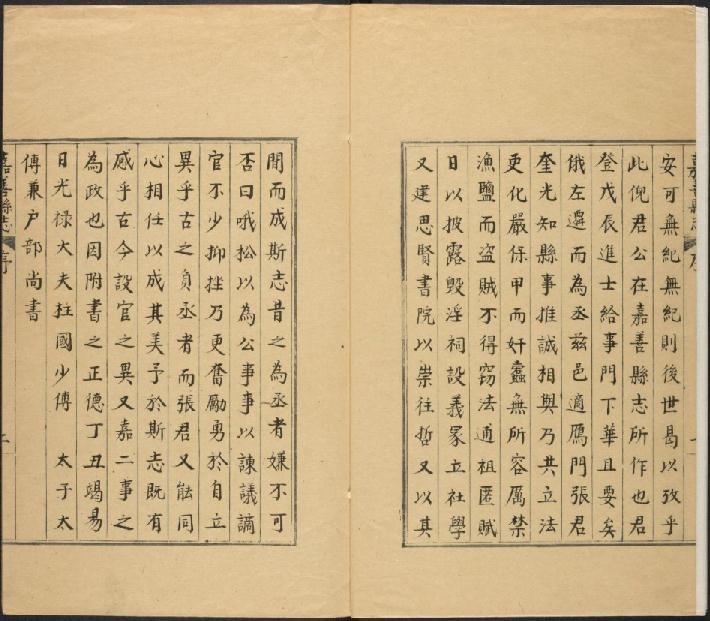 嘉善縣志 序
安可無紀無紀則後世曷以攷乎
此倪君公在嘉善縣志所作也君
登戊辰進士給事門下華且要矣
俄左遷而為丞茲邑適鴈門張君
奎光知縣事推誠相與乃共立法
更化嚴保甲而奸蠹無所容厲禁
漁鹽而盗賊不得竊法逋租匿賦
日以披露毁淫祠設義冢立社學
又建思賢書院以崇往哲又以其
閒而成斯志昔之為丞者嫌不可
否曰哦松以為公事事以諫議謫
官不少抑挫乃更奮勵勇於自立
異乎古之負丞者而張君又能同
心相仕以成其美予於斯志既有
感乎古今設官之異又嘉二事之
為政也因附書之正德丁丑竭易
日光祿大夫柱國少傅 太子太
傅兼户部尚書
嘉善縣志 序